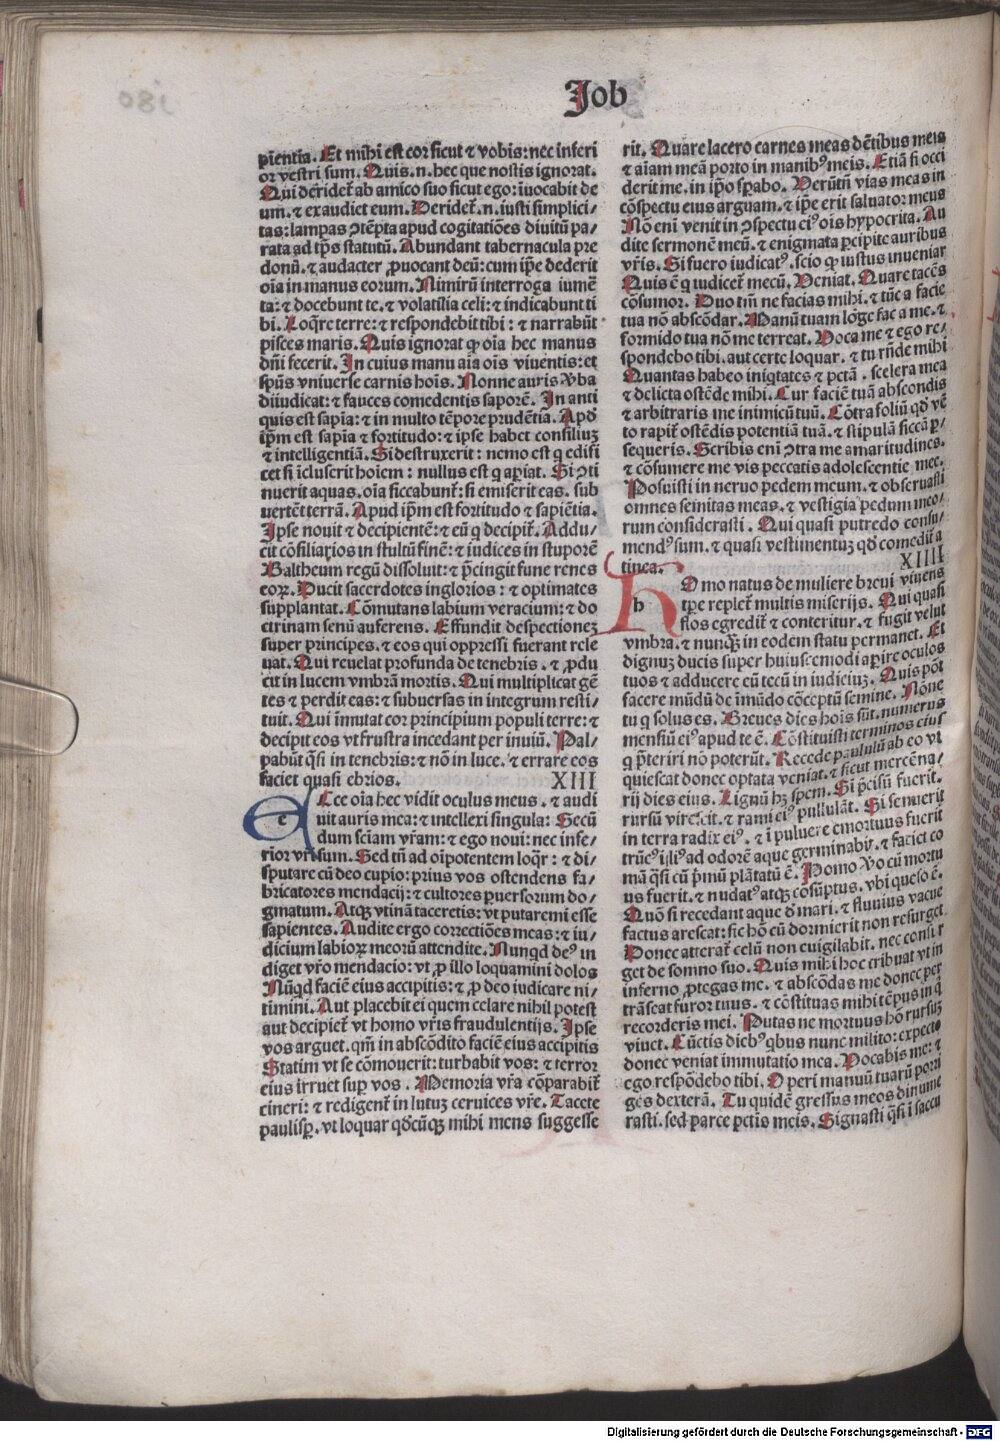 Job
pientia. Et mihi est cor sicut ⁊ vobis: nec inferi
or vestri sum. Quis .n. hec que nostis ignorat.
Qui deridet᷑ ab amico suo sicut ego: īuocabit de
um. ⁊ exaudiet eum. Deridet᷑ .n. iusti simplici/
tas: lampas ↄtēpta apud cogitatiōes diuitū pa/
rata ad tp̄s statutū. Abundant tabernacula pre
donū. ⁊ audacter ꝓuocant deū: cum ip̄e dederit
oīa in manus eorum. Nimirū interroga iumē
ta: ⁊ docebunt te. ⁊ volatilia celi: ⁊ indicabunt ti
bi. Loq̄re terre: ⁊ respondebit tibi: ⁊ narrabūt
pisces maris. Quis ignorat ꝙ oīa hec manus
dn̄i fecerit. In cuius manu aīa oīs viuentis: et
sp̄ūs vniuerse carnis hoīs. Nonne auris v̄ba
diiudicat: ⁊ fauces comedentis saporē. In anti
quis est sapīa: ⁊ in multo tēpore prudētia. Apd̄
ip̄m est sapīa ⁊ fortitudo: ⁊ ipse habet consiliuꝫ
⁊ intelligentiā. Si destruxerit: nemo est q̄ edifi
cet si īcluserit hoiem: nullus est q̄ aꝑiat. Si ↄti
nuerit aquas. oīa siccabunt᷑: si emiserit eas. sub
uertēt terrā. Apud ip̄m est fortitudo ⁊ sapiētia.
Ipse nouit ⁊ decipientē: ⁊ eū q̄ decipit᷑. Addu/
cit cōsiliarios in stultū finē: ⁊ iudices in stuporē
Baltheum regū dissoluit: ⁊ p̄cingit fune renes
eoꝝ. Ducit sacerdotes inglorios: ⁊ optimates
supplantat. Cōmutans labium veracium: ⁊ do
ctrinam senū auferens. Effundit despectioneꝫ
super principes. ⁊ eos qui oppressi fuerant rele
uat. Qui reuelat profunda de tenebris. ⁊ ꝓdu
cit in lucem vmbrā mortis. Qui multiplicat gē
tes ⁊ perdit eas: ⁊ subuersas in integrum resti/
tuit. Qui īmutat cor principium populi terre: ⁊
decipit eos vt frustra incedant per inuiū. Pal/
pabūt q̄si in tenebris: ⁊ nō in luce. ⁊ errare eos
faciet quasi ebrios. XIII
e Cce oīa hec vidit oculus meus. ⁊ audi
uit auris mea: ⁊ intellexi singula: Secū
dum sciam vr̄am: ⁊ ego noui: nec infe/
rior vr̄i sum. Sed tn̄ ad oīpotentem loq̄r: ⁊ di/
sputare cū deo cupio: prius vos ostendens fa/
bricatores mendacij: ⁊ cultores ꝑuersorum do/
gmatum. Atqꝫ vtinā taceretis: vt putaremi esse
sapientes. Audite ergo correctiōes meas: ⁊ iu/
dicium labioꝝ meorū attendite. Nunqd deꝰ in
diget vr̄o mendacio: vt ꝓ illo loquamini dolos
Nūqd faciē eius accipitis: ⁊ ꝓ deo iudicare ni/
timini. Aut placebit ei quem celare nihil potest
aut decipiet᷑ vt homo vr̄is fraudulentijs. Ipse
vos arguet. qm̄ in abscōdito faciē eius accipitis
Statim vt se cōmouerit: turbabit vos: ⁊ terror
eius irruet suꝑ vos. Memoria vr̄a cōparabit᷑
cineri: ⁊ redigent᷑ in lutuꝫ ceruices vr̄e. Tacete
paulisꝑ. vt loquar qd̄cūqꝫ mihi mens suggesse
rit. Quare lacero carnes meas dētibus meis
⁊ aīam meā porto in manibꝰ meis. Etiā si occi
derit me. in ip̄o sꝑabo. Verūtn̄ vias meas in
cōspectu eius arguam. ⁊ ip̄e erit saluator meus
Nō enī venit in ↄspectu eiꝰ oīs hypocrita. Au
dite sermonē meū. ⁊ enigmata ꝑcipite auribus
vr̄is. Si fuero iudicatꝰ. scio ꝙ iustus inueniar
Quis ē q̄ iudicet᷑ mecū. Veniat. Quare tacēs
cōsumor. Duo tm̄ ne facias mihi. ⁊ tūc a facie
tua nō abscōdar. Manū tuam lōge fac a me. ⁊
formido tua nō me terreat. Voca me ⁊ ego re/
spondebo tibi. aut certe loquar. ⁊ tu rn̄de mihi
Quantas habeo iniqtates ⁊ pctā. scelera mea
⁊ delicta ostēde mihi. Cur faciē tuā abscondis
⁊ arbitraris me inimicū tuū. Cōtra foliū qd̄ vē
to rapit᷑ ostēdis potentiā tuā. ⁊ stipulā siccā ꝑ/
sequeris. Scribis enī ↄtra me amaritudines.
⁊ cōsumere me vis peccatis adolescentie mee.
Posuisti in neruo pedem meum. ⁊ obseruasti
omnes semitas meas. ⁊ vestigia pedum meo/
rum considerasti. Qui quasi putredo consu/
mendꝰ sum. ⁊ quasi vestimentuꝫ qd̄ comedit᷑ a
tinea. XIIII
h Omo natus de muliere breui viuens
tꝑe replet᷑ multis miserijs. Qui quasi
flos egredit᷑ ⁊ conteritur. ⁊ fugit velut
vmbra. ⁊ nunqꝫ in eodem statu permanet. Et
dignuꝫ ducis super huiuscemodi aꝑire oculos
tuos ⁊ adducere eū tecū in iudiciuꝫ. Quis pōt
facere mūdū de īmūdo cōceptū semine. Nōne
tu q̄ solus es. Breues dies hoīs sūt. numerus
mensiū eiꝰ apud te ē. Cōstituisti terminos eius
q̄ p̄teriri nō poterūt. Recede paululū ab eo vt
quiescat donec optata veniat. ⁊ sicut mercēna/
rij dies eius. Lignū hꝫ spem. Si p̄cisū fuerit.
rursū virescit. ⁊ rami eiꝰ pullulāt. Si senuerit
in terra radix eiꝰ. ⁊ ī puluere emortuus fuerit
trūcꝰ illiꝰ ad odorē aque germinabit. ⁊ faciet co
mā q̄si cū p̄mū plātatū ē. Homo v̄o cū mortu
us fuerit. ⁊ nudatꝰ atqꝫ cōsūptus. vbi queso ē.
Quō si recedant aque d̄ mari. ⁊ fluuius vacue
factus arescat: sic hō cū dormierit non resurget
Donec atterat᷑ celū non euigilabit. nec consur
get de somno suo. Quis mihi hoc tribuat vt in
inferno ꝓtegas me. ⁊ abscōdas me donec per
trāseat furor tuus. ⁊ cōstituas mihi tēpus in q̄
recorderis mei. Putas ne mortuus hō rursuꝫ
viuet. Cūctis diebꝰ qbus nunc milito: expecto
donec veniat immutatio mea. Vocabis me: ⁊
ego respōdebo tibi. Operi manuū tuarū porri
ges dexterā. Tu quidē gressus meos dinume
rasti. sed parce pctis meis. Signasti q̄si ī saccu
Digitalisierung gefördert durch die Deutsche Forschungsgemeinschaft - DFG